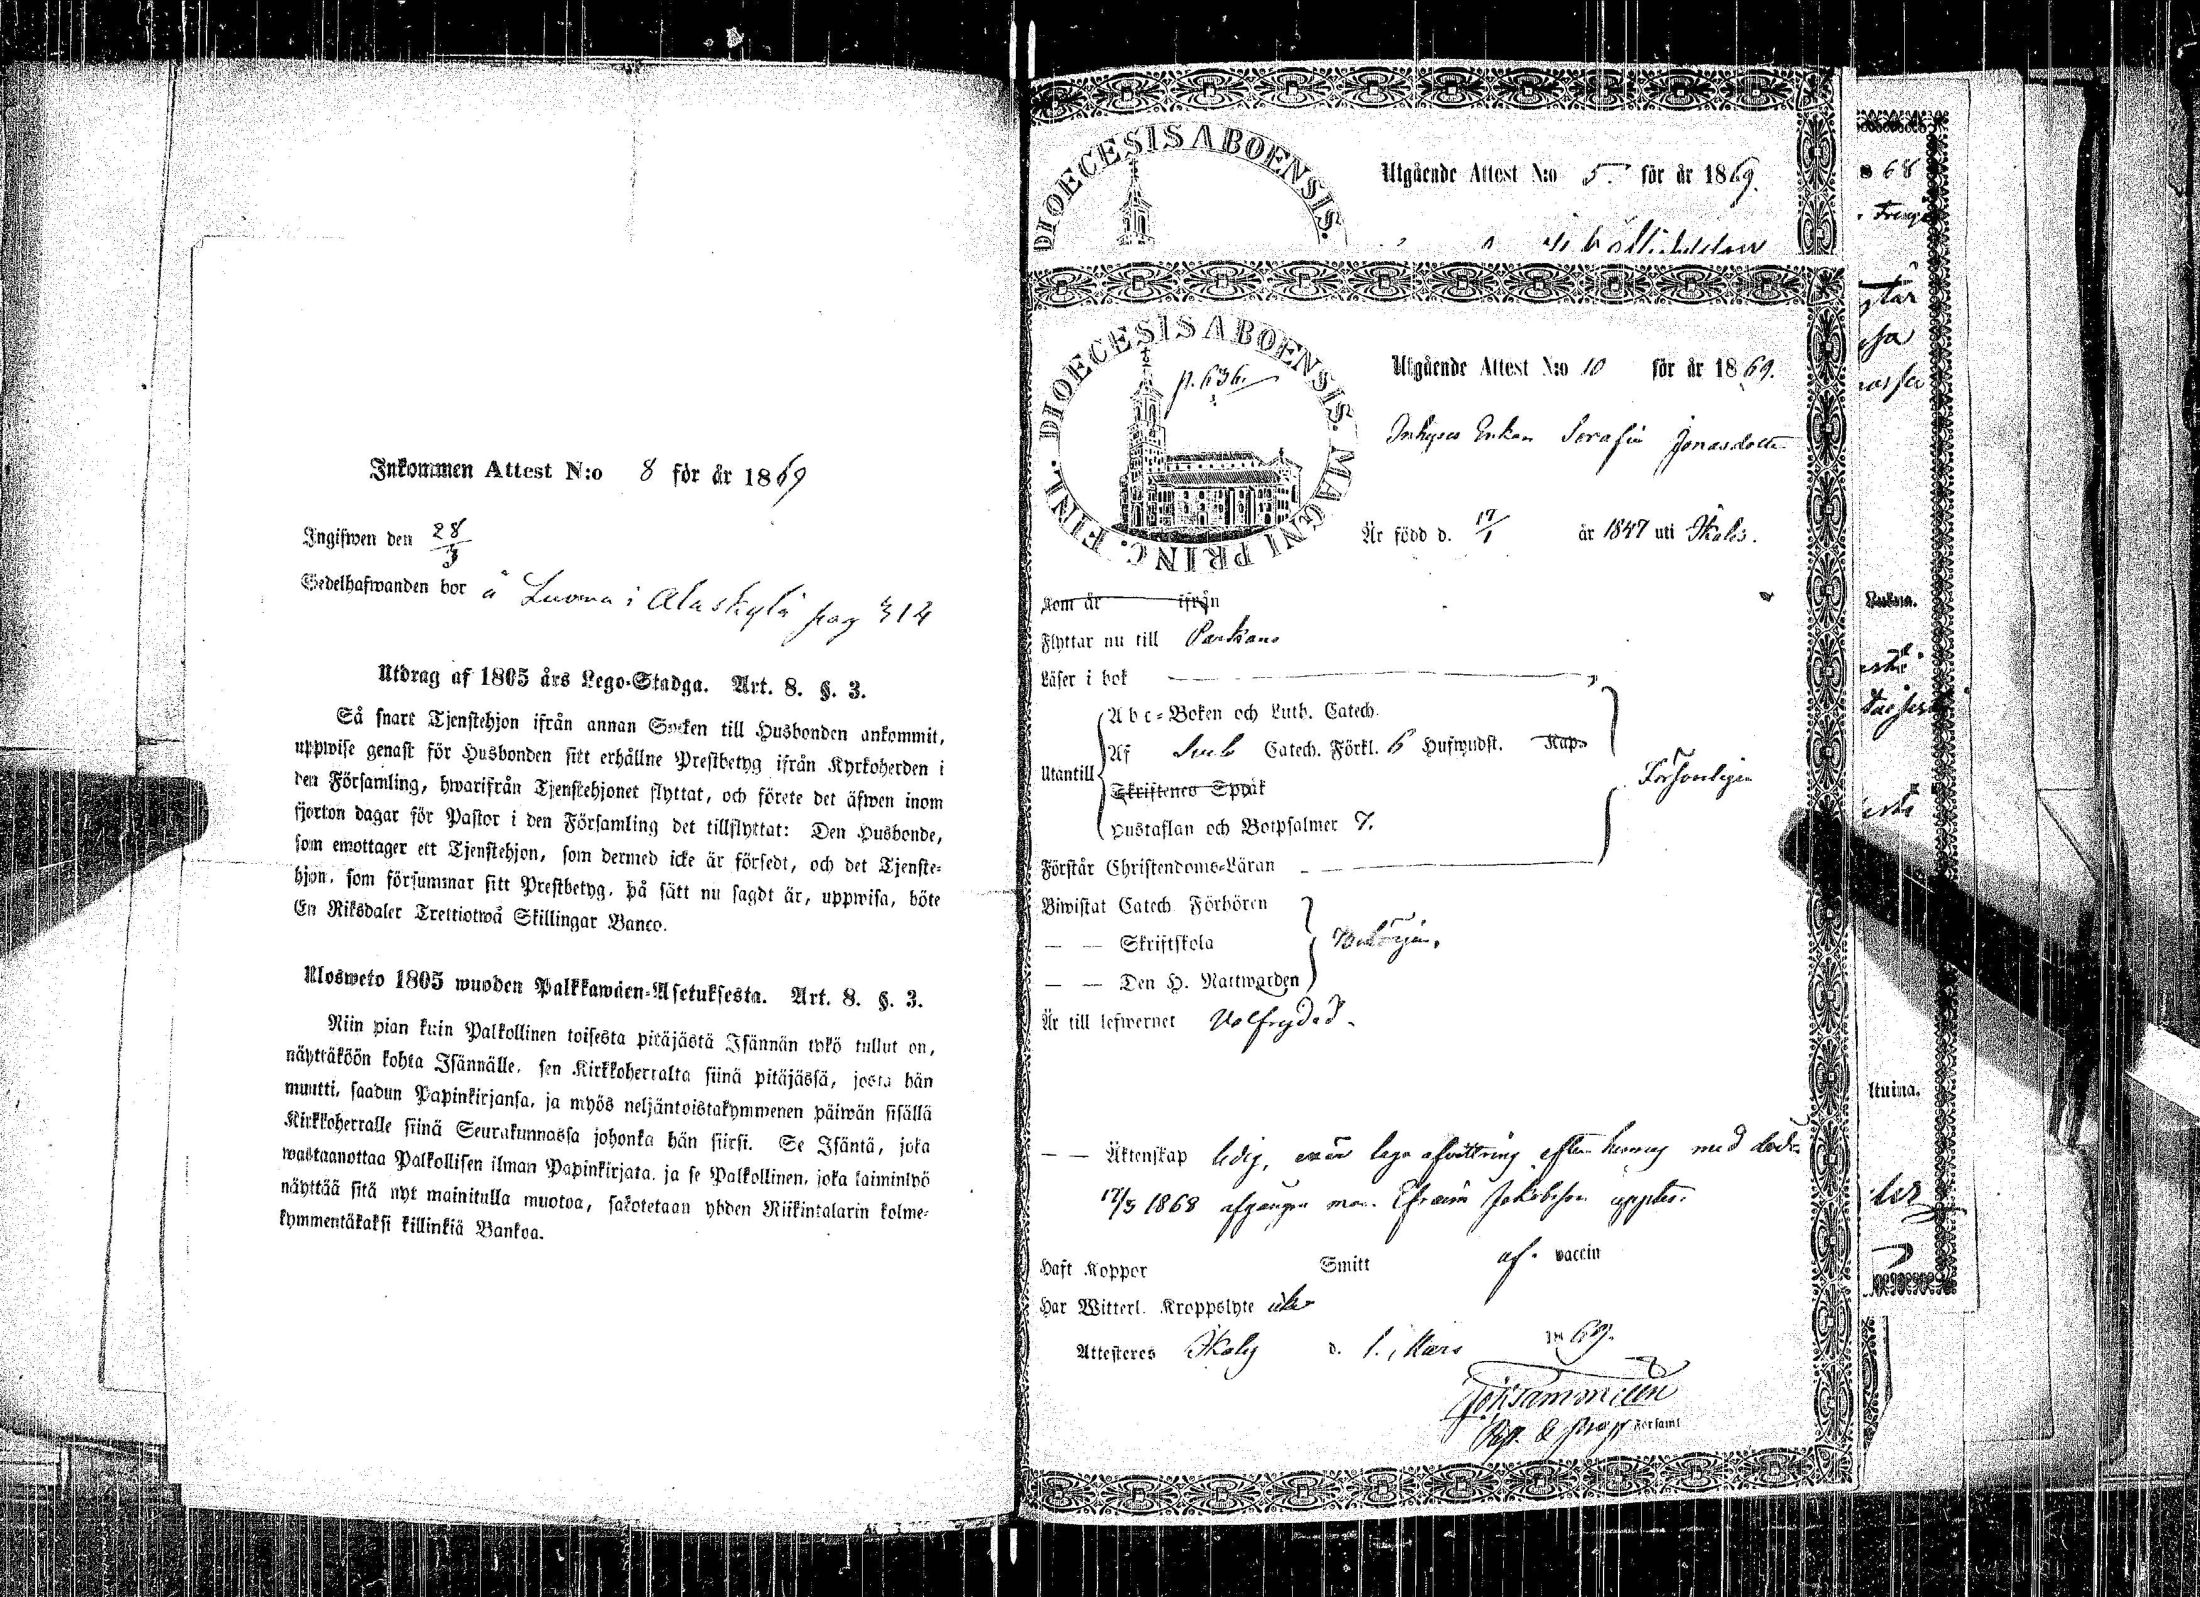 Inkommen Attest N:o 8 för år 1869
Ingifwen den 28/3
Sedelhafwanden bor å Luoma i Alaskylä pag 314
Utdrag af 1805 års Lego-Stadga. Art. 8. §. 3.
Så snart Tjenstehjon ifrån annan Socken till Husbonden ankommit,
uppwise genast för Husbonden sitt erhållne Prestbetyg ifrån Kyrkoherden i
den Församling, hwarifrån Tjenstehjonet flyttat, och förete det äfwen inom
fjorton dagar för Pastor i den Församling det tillflyttat: Den Husbonde,
som emottager ett Tjenstehjon, som dermed icke är försedt, och det Tjenste-
hjon, som försummar sitt Prestbetyg, på sätt nu sagdt är, uppwisa, böte
En Riksdaler Trettiotwå Skillingar Banco.
Ulosweto 1805 wuoden Palkkawäen-Asetuksesta. Art. 8. §. 3.
Niin pian kuin Palkollinen toisesta pitäjästä Isännän tykö tullut on,
näyttäköön kohta Isännälle, sen Kirkkoherralta siinä pitäjässä, josta hän
muutti, saadun Papinkirjansa, ja myös neljäntoistakymmenen päiwän sisällä
Kirkkoherralle siinä Seurakunnassa johonka hän siirsi. Se Isäntä, joka
wastaanottaa Palkollisen ilman Papinkirjata, ja se Palkollinen, joka laiminlyö
näyttää sitä nyt mainitulla muotoa, sakotetaan yhden Riikintalarin kolme-
kymmentäkaksi killinkiä Bankoa.
DIOECESIS ABOENSIS.
Utgående Attest N:o 5. för år 1869.
DIOECESIS ABOENSIS. MAGNI PRINC. FINL.
p. 636.
Utgående Attest N:o 10 för år 1869.
Inhyses Enkan Serafia Jonasdotter
Är född d. 17/1 år 1847 uti Ikalis.
Kom år ifrån
Flyttar nu till Parkano
Läser i bok
Utantill
Abc-Boken och Luth. Catech.
Af Sveb Catech. Förkl. 6 Hufwudst. Kap.
Skriftenes Språk
Hustaflan och Botpsalmer 7.
Försvarligen
Förstår Christendoms-Läran
Biwistat Catech Förhören
— — Skriftskola
— — Den H. Nattwarden
Behörigen.
Är till lefwernet Välfrejdad.
— — Äktenskap ledig, laga afvittring efter hennes med döden
17/3 1868 afgångne man Efraim Jakobsson
Haft Koppor Smitt af vaccin
Har Witterl. Kroppslyte icke
Attesteres Ikalis d. 1. Mars 1869.
Församl
68
tuina.